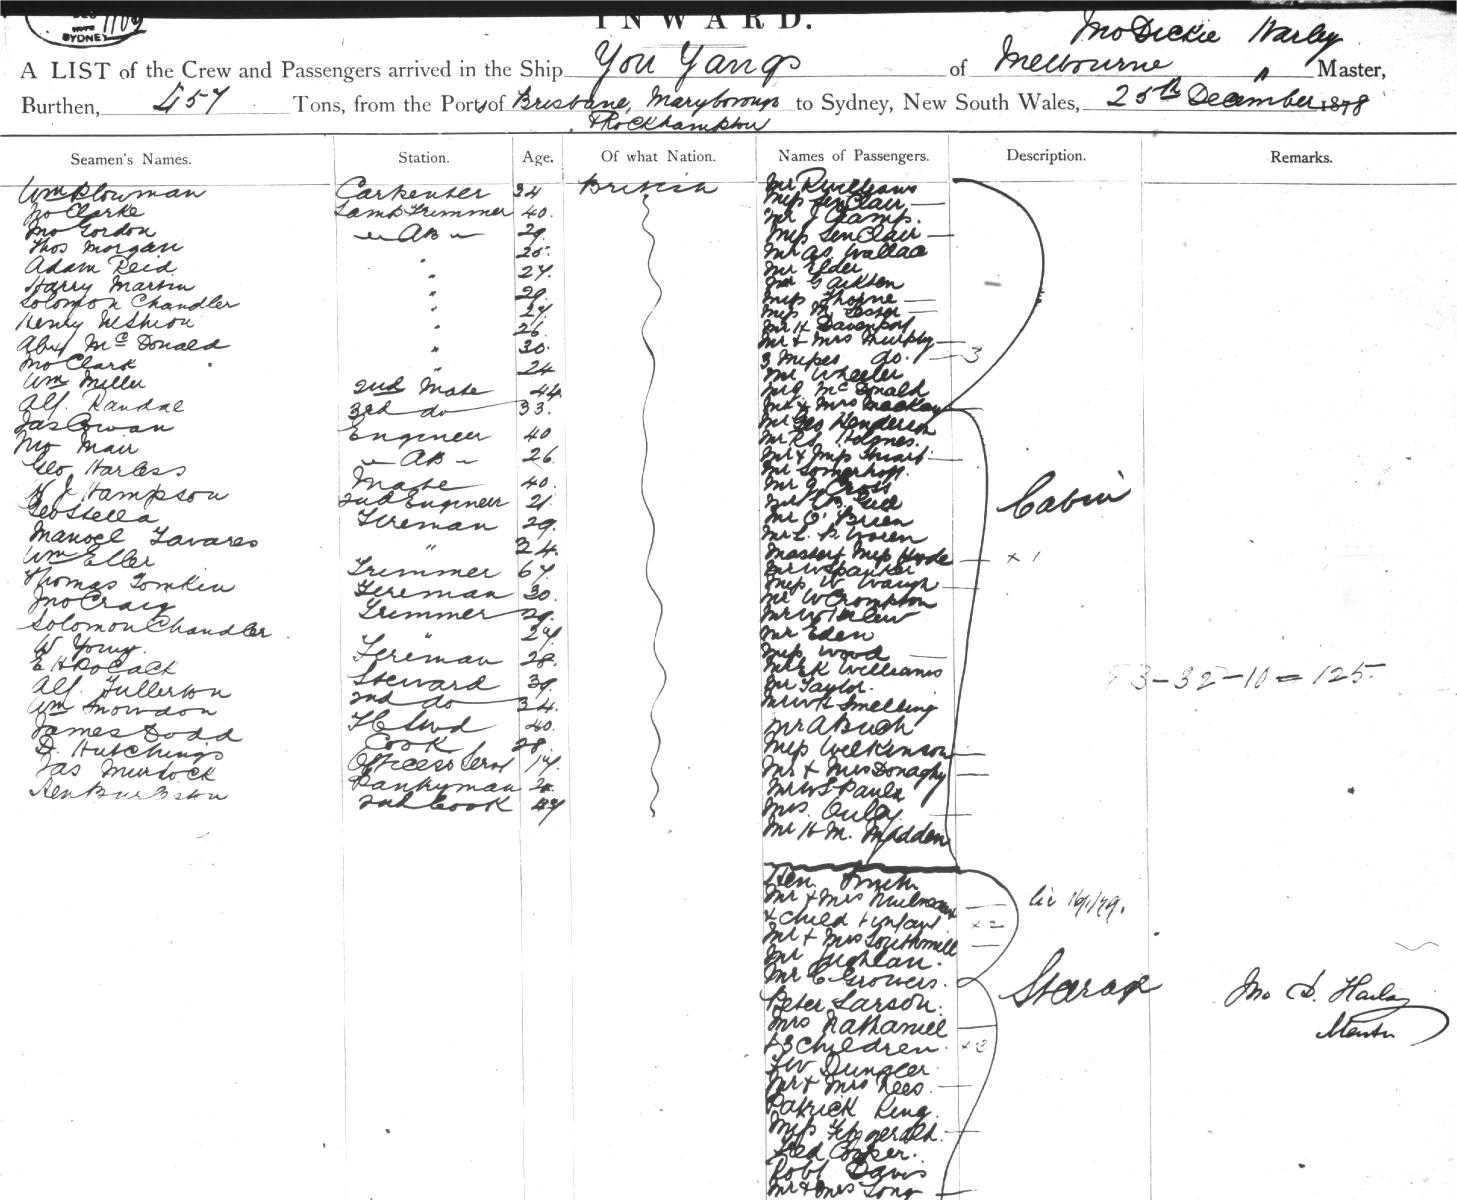 SYDNEY
INWARD.
Jno Dickie Harley
A LIST of the Crew and Passengers arrived in the Ship You Yangs of Melbourne Master,
Burthen, 457 Tons, from the Port of Brisbane, Maryborough to Sydney, New South Wales, 25th December 1878
& Rockhampton
Seamen's Names. Station. Age. Of what Nation. Names of Passengers. Description. Remarks.
Wm Plowman Carpenter 34 British
Jno Clarke Lamp Trimmer 40.
Jno Gordon " AB " 29
Thos Morgan " 25.
Adam Reid " 27.
Harry Martin " 29
Solomon Chandler " 27
Henry 26.
Alexr McDonald " 30.
Jno Clark " 24
Wm Miller 2nd Mate 44
Alf. Randal 3rd do 33.
Jas Cowan Engineer 40
Jno Mair " AB " 26
Geo Harless Mate 40.
H J Hampson 2nd Engineer 21.
Geo Stella Fireman 29.
Manoel Tavares " 34.
Wm Eller Trimmer 67
Thomas Tomkin Fireman 30.
Jno Craig Trimmer 29.
Solomon Chandler " 27
W Young. Fireman 28.
E H Pocack Steward 39.
Alf. Fullerton 2nd do 34.
Wm Snowdon 40.
James Dodd Cook 28.
D. Hutchings Officers Servt 17.
Jas Murdock Pantryman
2nd Cook 47
Mr R Williams
Miss SenClair
Mr J Clamp.
Miss SenClair
Mr As Wallace
Mr Elder
Mr G
Miss Thorne
Miss M.
Mr H Davenport
Mr & Mrs Murphy
3 Misses do. 3
Mr Wheeler
McDonald
Mr & Mrs Mackay
Mr Geo Henderson
Mr Rd Holmes.
Mr & Miss Stuart
Mr Somerhoff.
Mr G Cross
Mr
Mr O'Brien
Mr L. P.
Master & Miss Hyde x 1
Mr W Spanker
Miss W Waugh
Mr W Crompton
Mr W
Mr Eden
Miss Wood
Mr K Williams
Mr Taylor.
Mr W H Smelling
Mr A Buch
Miss Wilkinson
Mr & Mrs Donaghy
Mr W S Pauls
Mrs.
Mr H M. Madden
Cabin
3-32-10 = 125
Hen Smith
Mr & Mrs
& child & infant x 2
Mr & Mrs Southmill
Mr
Mr C Growers.
Peter Larson.
Mrs Nathaniel
& 3 Children. x 3
Fw Dungler
Mr & Mrs Rees.
Patrick King.
Miss Fitzgerald.
Fred Cooper.
Robt Davis
Mr & Mrs Long
Steerage
Jno D. Harley
Master